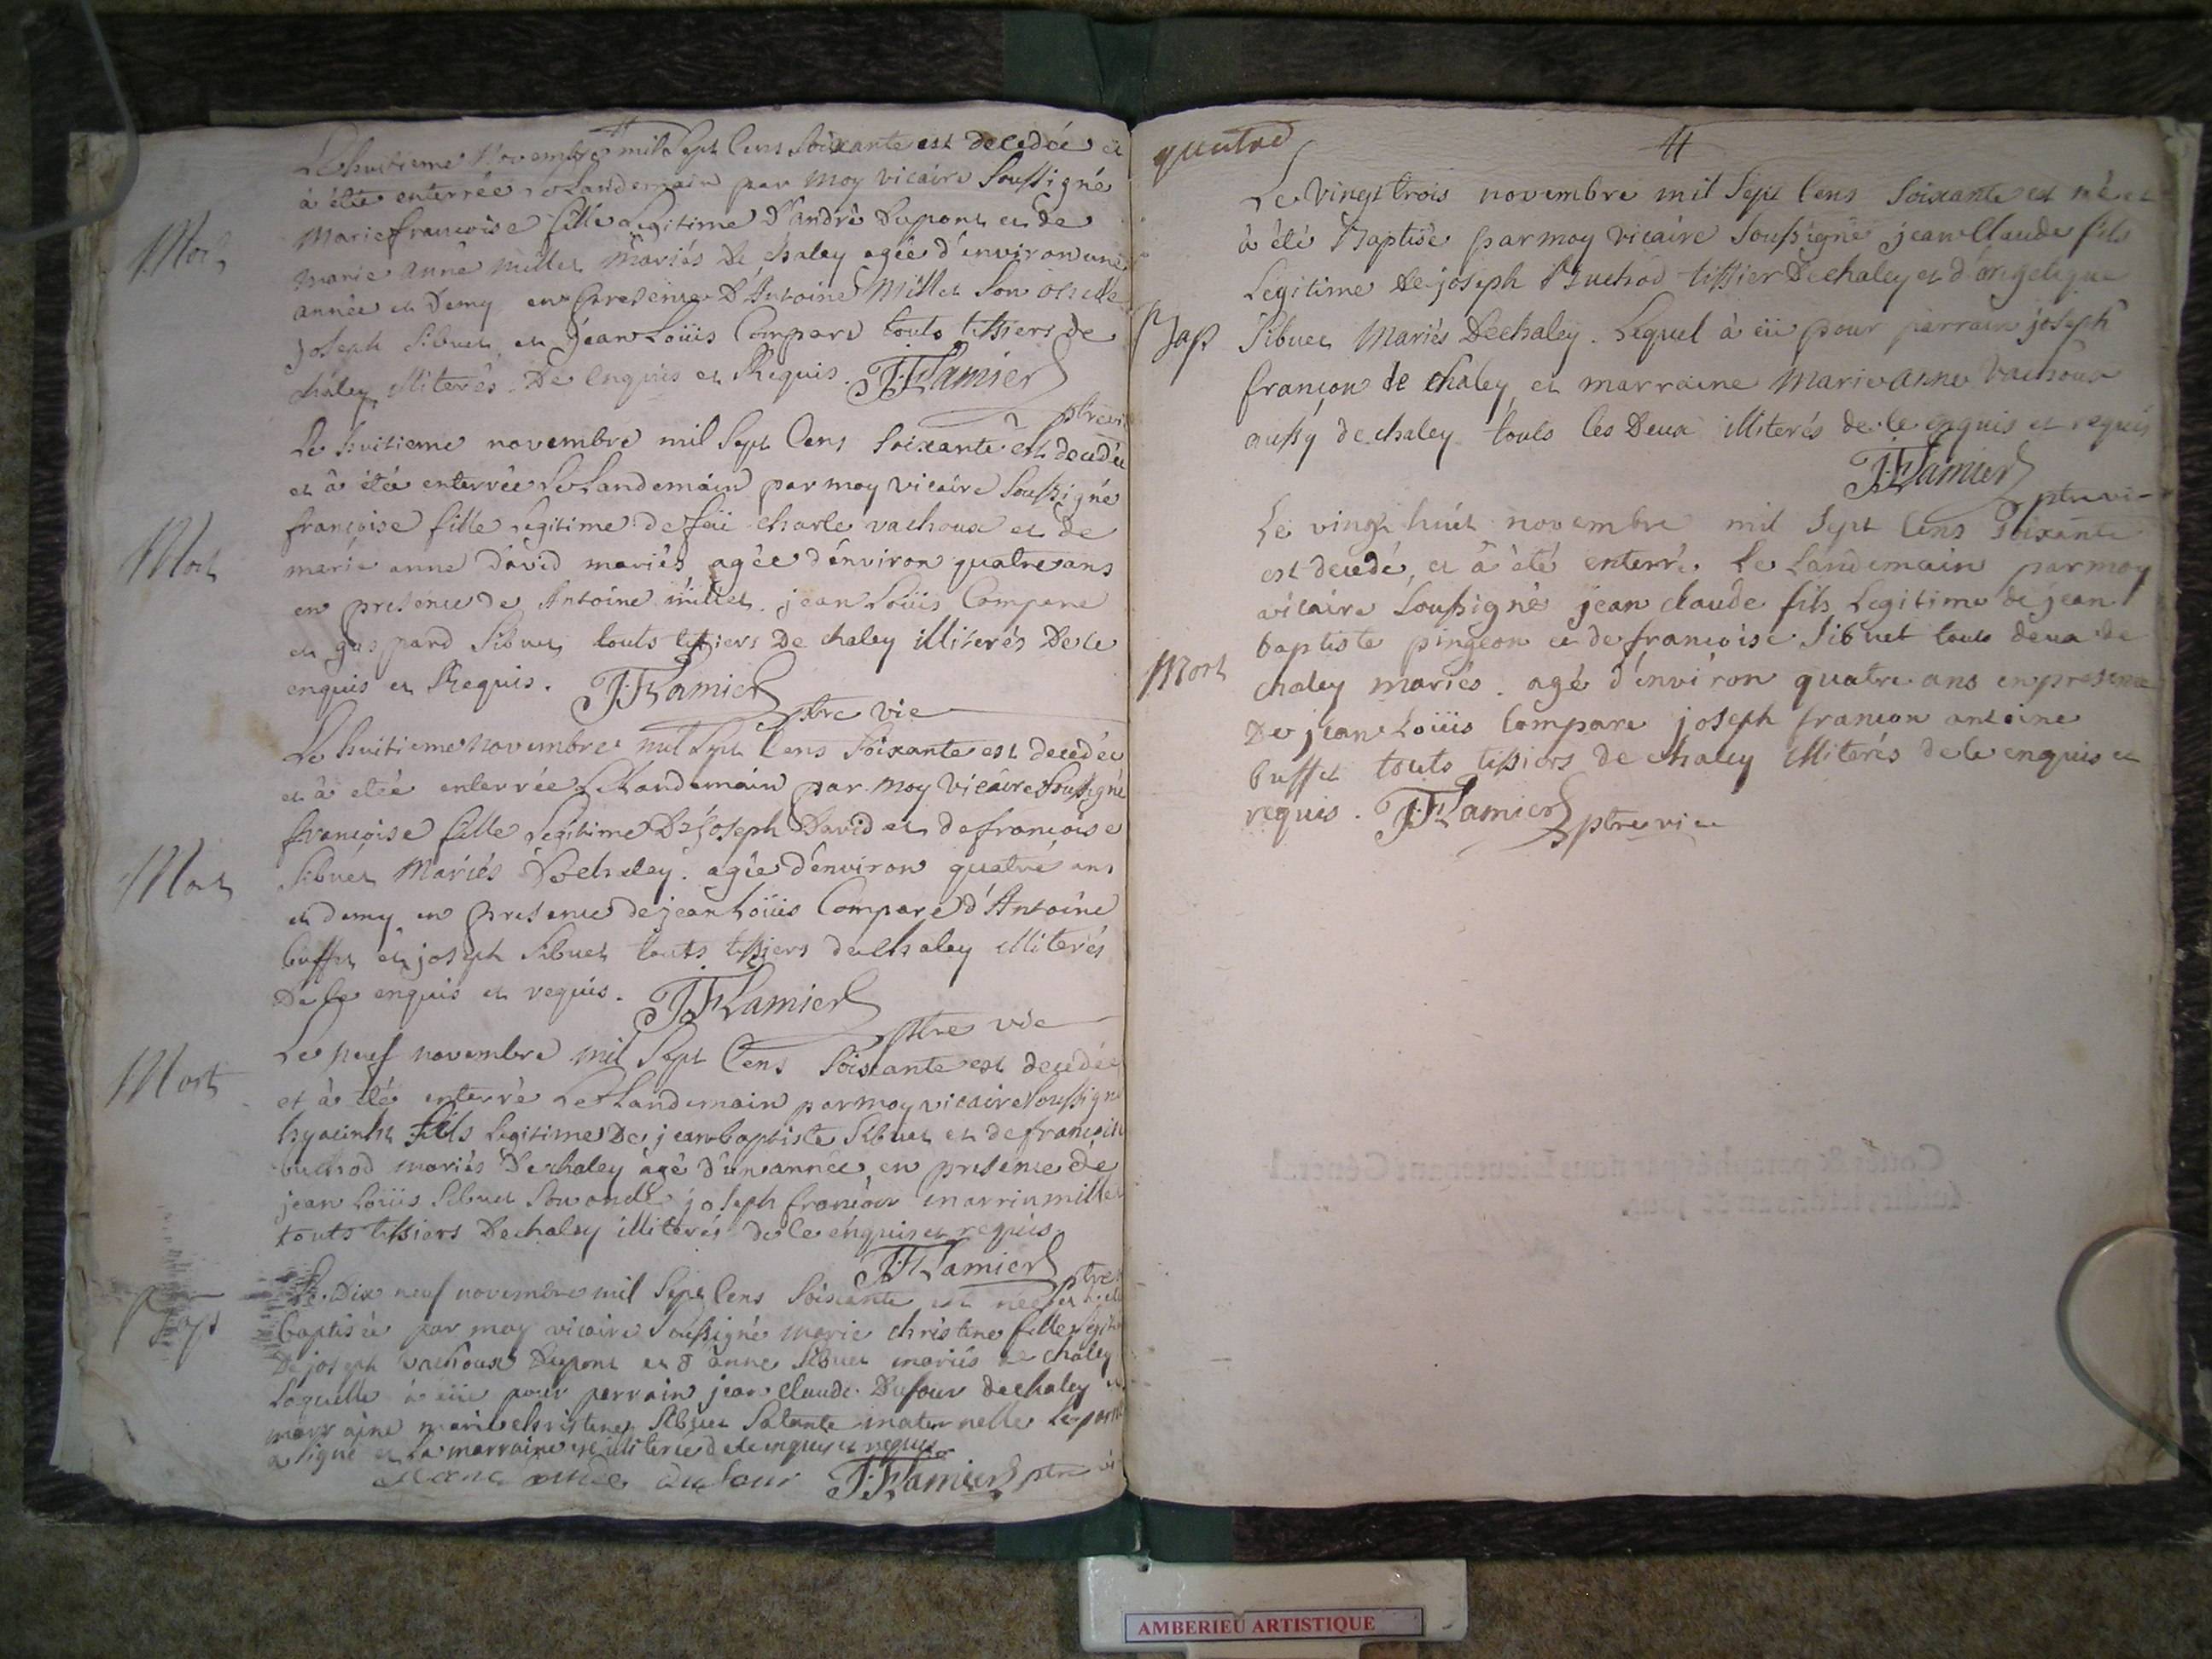 Le huitieme Novembre mil Sept Cens Soixante est decedée et
à été enterrée Le Landemain par moy vicaire Soussigné
Marie françoise fille Legitime D'andrè Dupont et de
Mort
marie anne millet mariés De chaley agée d'environ une
année et Demy en presence D'Antoine Millet Son oncle
joseph Sibuet et Jean Loüis Compare touts tissiers de
chaley illiterés De Ce enquis et Requis. J:F:Lamier
ptre vi
Le huitieme novembre mil Sept Cens Soixante est decedée
et à étée enterrée Le Landemain par moy vicaire Soussigné
françoise fille Legitime de feü charle vachoux et de
Mort
marie anne david mariés agée d'environ quatre ans
en presence de Antoine millet jean Loüis Compare
et gaspard Sibuet touts tissiers De chaley illiterés De Ce
enquis et Requis. J:F:Lamier
ptre vic
Le huitieme Novembre mil Sept Cens Soixante est decedée
et à étée enterrée Le Landemain par moy Vicaire Soussigné
françoise fille Legitime De Joseph David et de françoise
Mort
Sibuet Mariés De chaley. agée d'environ quatre ans
et demy en presence de jean Loüis Compare d'Antoine
buffet et joseph Sibuet touts tissiers de Chaley illiterés
De Ce enquis et requis. J:F:Lamier
ptre vic
Le neuf novembre mil Sept Cens Soixante est decedée
Mort
et à été enterré Le Landemain par moy vicaire Soussigné
hyacinthe fils Legitime De jean baptiste Sibuet et de françoise
buchod mariés De chaley agé d'un année, en presence de
jean Loüis Sibuet Son oncle joseph françon marrin millet
touts tissiers De chaley illiterés de Ce enquis et requis.
J:F:Lamier ptre
Le Dix neuf novembre mil Sept Cens Soixante est née et
Bap
baptisée par moy vicaire Soussigné marie christine fille Legitime
De joseph vachoux Dupont et d'anne Sibuet mariés de chaley
Laquelle à eüe pour parrain jean claude Dufour de chaley et
marraine marie christine Sibuet Sa tante maternelle Le parrain
a Signé et La marraine illiterée de Ce enquis et requis
dufour J:F:Lamier ptre vi
quatre
4
Le Vingt trois novembre mil Sept Cens Soixante est né et
à été Baptisé par moy vicaire Soussigné jean Claude fils
Legitime de joseph Buchod tissier De chaley et d'angelique
Bap
Sibuet Mariés De chaley. Lequel à eü pour parrain joseph
françon de chaley et marraine Marie Anne Vachoux
aussy de chaley touts les Deux illiterés de Ce enquis et requis
J:F:Lamier
ptre vi
Le vingt huit novembre mil Sept Cens Soixante
est decedé, et à été enterré Le Landemain par moy
vicaire Soussigné jean claude fils Legitime de jean
baptiste pingeon et de françoise Sibuet touts deux de
Mort
chaley mariés. agé d'environ quatre ans en presence
De jean Loüis Compare joseph françon antoine
buffet touts tissiers de chaley illiterés de Ce enquis et
requis. J:F:Lamier ptre vic
AMBERIEU ARTISTIQUE